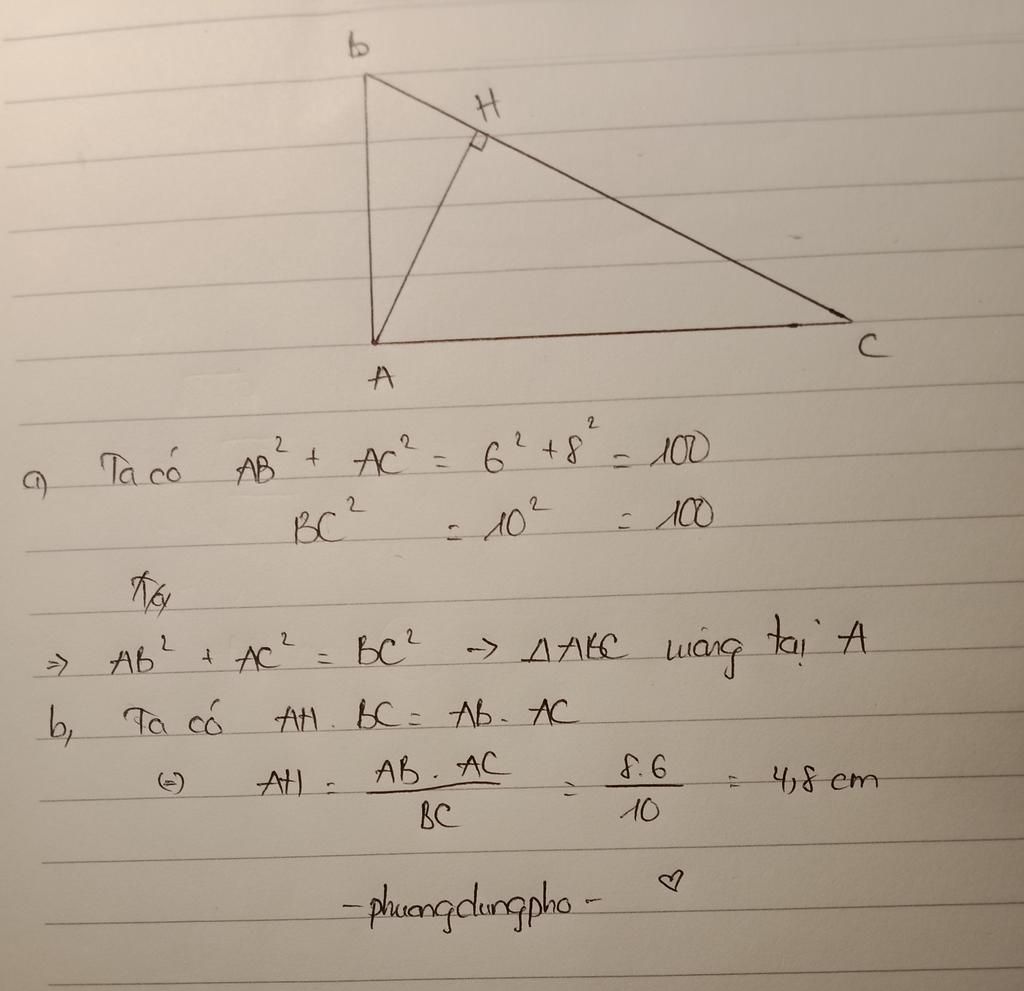 B
H
A
C
a) Ta có AB² + AC² = 6² + 8² = 100
BC² = 10² = 100
⇒ AB² + AC² = BC² → ΔABC vuông tại A
b, Ta có AH . BC = AB . AC
(=) AH = \frac{AB . AC}{BC} = \frac{8.6}{10} = 4,8 cm
- phuongdungpho - ♡